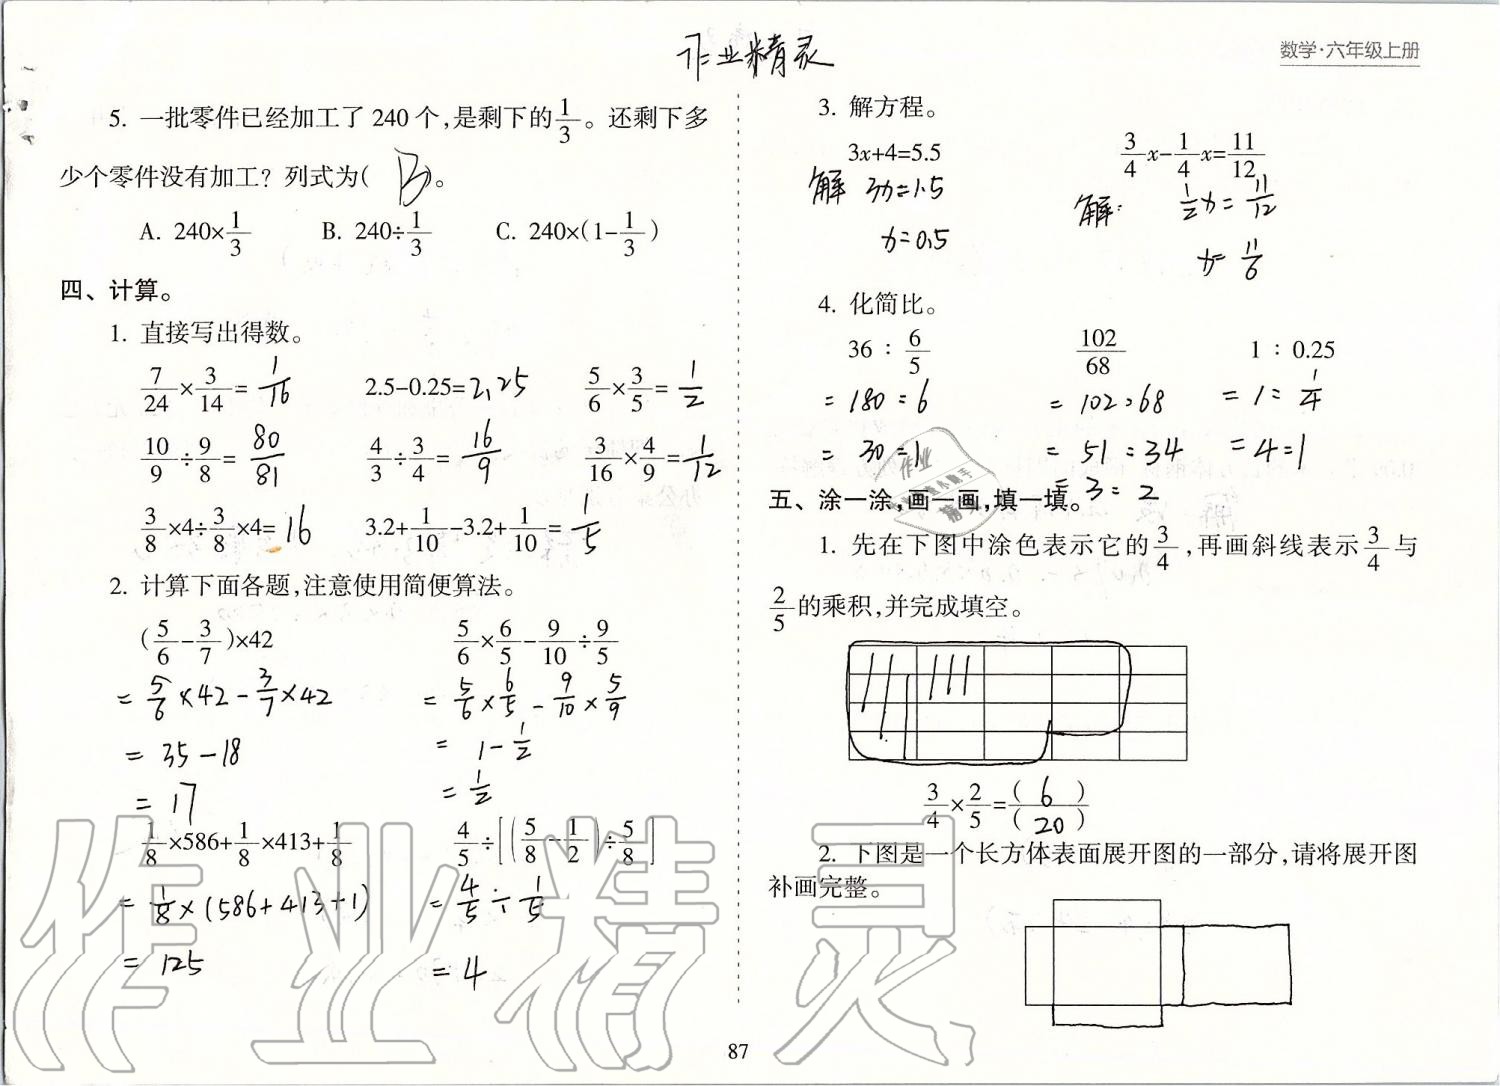 作业精灵
数学·六年级上册
5. 一批零件已经加工了 240 个,是剩下的1/3。还剩下多
少个零件没有加工? 列式为( B )。
A. 240×1/3 B. 240÷1/3 C. 240×(1-1/3)
四、计算。
1. 直接写出得数。
7/24×3/14=1/16 2.5-0.25=2.25 5/6×3/5=1/2
10/9÷9/8=80/81 4/3÷3/4=16/9 3/16×4/9=1/12
3/8×4÷3/8×4=16 3.2+1/10-3.2+1/10=1/5
2. 计算下面各题,注意使用简便算法。
(5/6-3/7)×42 5/6×6/5-9/10÷9/5
=5/6×42-3/7×42 =5/6×6/5-9/10×5/9
=35-18 =1-1/2
=17 =1/2
1/8×586+1/8×413+1/8 4/5÷[(5/8-1/2)÷5/8]
=1/8×(586+413+1) =4/5÷1/5
=125 =4
3. 解方程。
3x+4=5.5 3/4x-1/4x=11/12
解 3x=1.5 解: 1/2x=11/12
x=0.5 x=11/6
4. 化简比。
36∶6/5 102/68 1∶0.25
=180:6 =102:68 =1:1/4
=30:1 =51:34 =4:1
=3:2
五、涂一涂,画一画,填一填。
1. 先在下图中涂色表示它的3/4,再画斜线表示3/4与
2/5的乘积,并完成填空。
3/4×2/5=(6)/(20)
2. 下图是一个长方体表面展开图的一部分,请将展开图
补画完整。
87
作业精灵